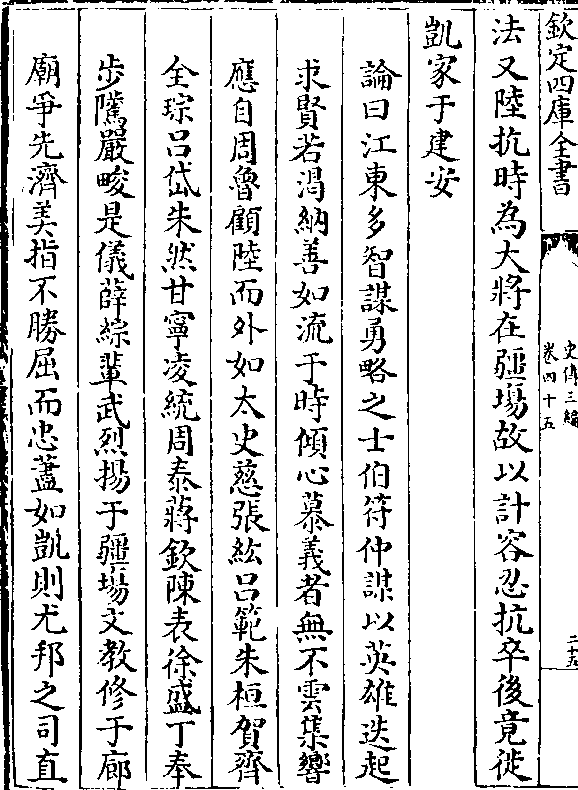 欽定四庫全書
史傳三編
卷四十五
二十五
法又陸抗時為大將在疆埸故以計容忍抗卒後竟徙
凱家于建安
論曰江東多智謀勇略之士伯符仲謀以英雄迭起
求賢若渴納善如流于時傾心慕義者無不雲集響
應自周魯顧陸而外如太史慈張紘呂範朱桓賀齊
全琮呂岱朱然甘寧凌統周泰蔣欽陳表徐盛丁奉
步隲嚴畯是儀薛綜輩武烈揚于疆埸文教修于廊
廟爭先濟美指不勝屈而忠藎如凱則尤邦之司直